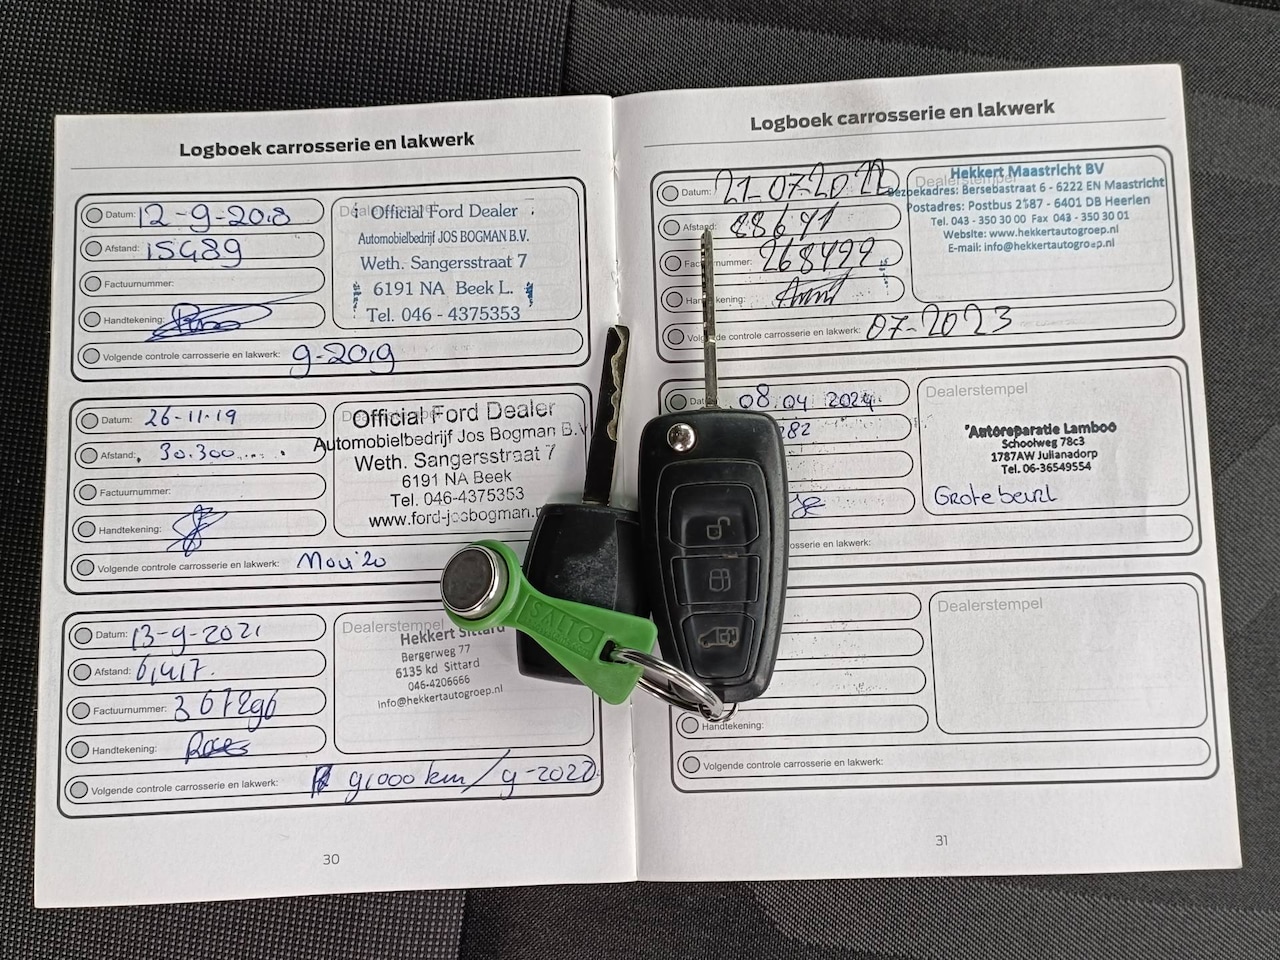 Logboek carrosserie en lakwerk
Datum: 12-9-2018
Afstand: 15489
Factuurnummer:
Handtekening:
Volgende controle carrosserie en lakwerk: 9-2019
Official Ford Dealer
Automobielbedrijf JOS BOGMAN B.V.
Weth. Sangersstraat 7
6191 NA Beek L.
Tel. 046 - 4375353
Datum: 26-11-19
Afstand: 30.300
Factuurnummer:
Handtekening:
Volgende controle carrosserie en lakwerk: Nov '20
Official Ford Dealer
Automobielbedrijf Jos Bogman B.V.
Weth. Sangersstraat 7
6191 NA Beek
Tel. 046-4375353
www.ford-josbogman.n
Datum: 13-9-2021
Afstand: 61417.
Factuurnummer: 3671296
Handtekening:
Volgende controle carrosserie en lakwerk: 91000 km/9-2022
Dealerstempel
Hekkert Sittard
Bergerweg 77
6135 kd Sittard
046-4206666
info@hekkertautogroep.nl
30
Logboek carrosserie en lakwerk
Datum: 21-07-2022
Afstand: 88671
Factuurnummer: 268499
Handtekening:
Volgende controle carrosserie en lakwerk: 07-2023
Dealerstempel
Hekkert Maastricht BV
Bezoekadres: Bersebastraat 6 - 6222 EN Maastricht
Postadres: Postbus 2587 - 6401 DB Heerlen
Tel. 043 - 350 30 00 Fax 043 - 350 30 01
Website: www.hekkertautogroep.nl
E-mail: info@hekkertautogroep.nl
Datum: 08 04 2024
282
sserie en lakwerk:
Dealerstempel
Autoreparatie Lamboo
Schoolweg 78c3
1787AW Julianadorp
Tel. 06-36549554
Grote beurt
Handtekening:
Volgende controle carrosserie en lakwerk:
Dealerstempel
31
SALTO